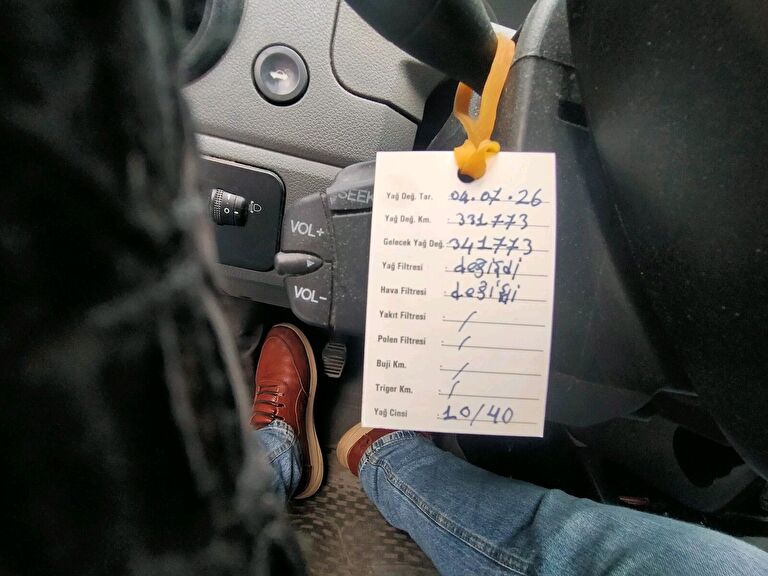 SEEK
VOL+
VOL-
0
Yağ Değ. Tar. 04.07.26
Yağ Değ. Km. 331773
Gelecek Yağ Değ. 341773
Yağ Filtresi değişdi
Hava Filtresi değişdi
Yakıt Filtresi /
Polen Filtresi /
Buji Km. /
Triger Km. /
Yağ Cinsi :10/40